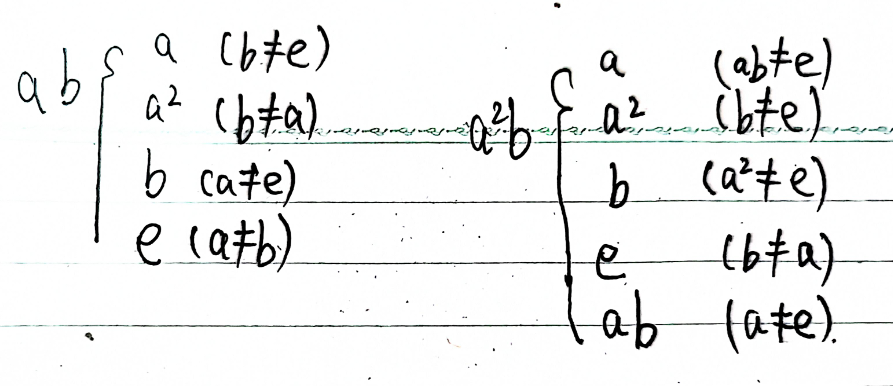 ab { a (b≠e)
a² (b≠a)
b (a≠e)
e (a≠b)
a²b { a (ab≠e)
a² (b≠e)
b (a²≠e)
e (b≠a)
ab (a≠e).